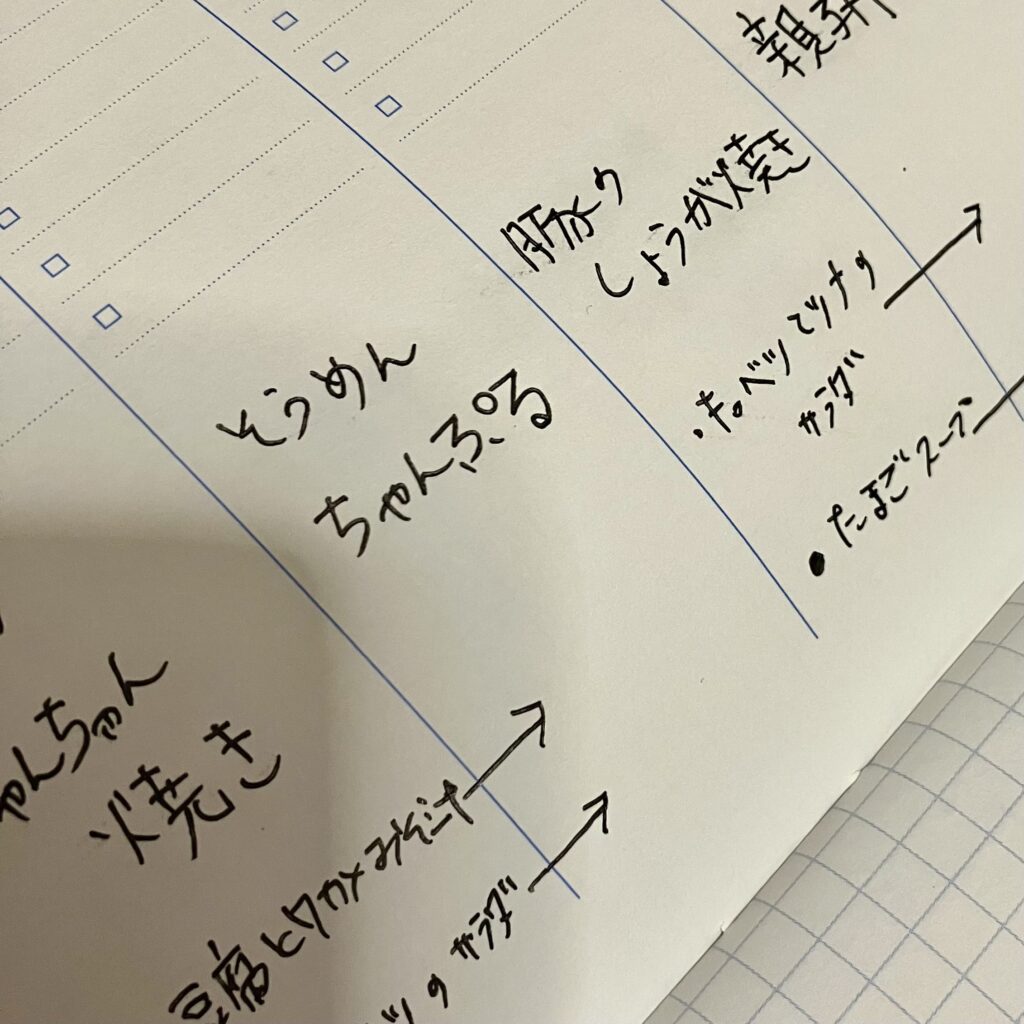 親子
豚の
しょうが焼き
・キャベツとツナの
サラダ
・たまごスープ
そうめん
ちゃんぷる
ゃんちゃん
焼き
豆腐とワカメみそ汁
ツの サラダ